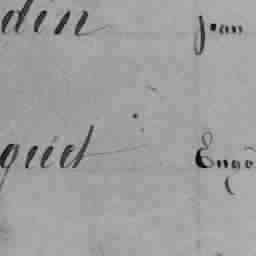 din Jean
quet Eugè